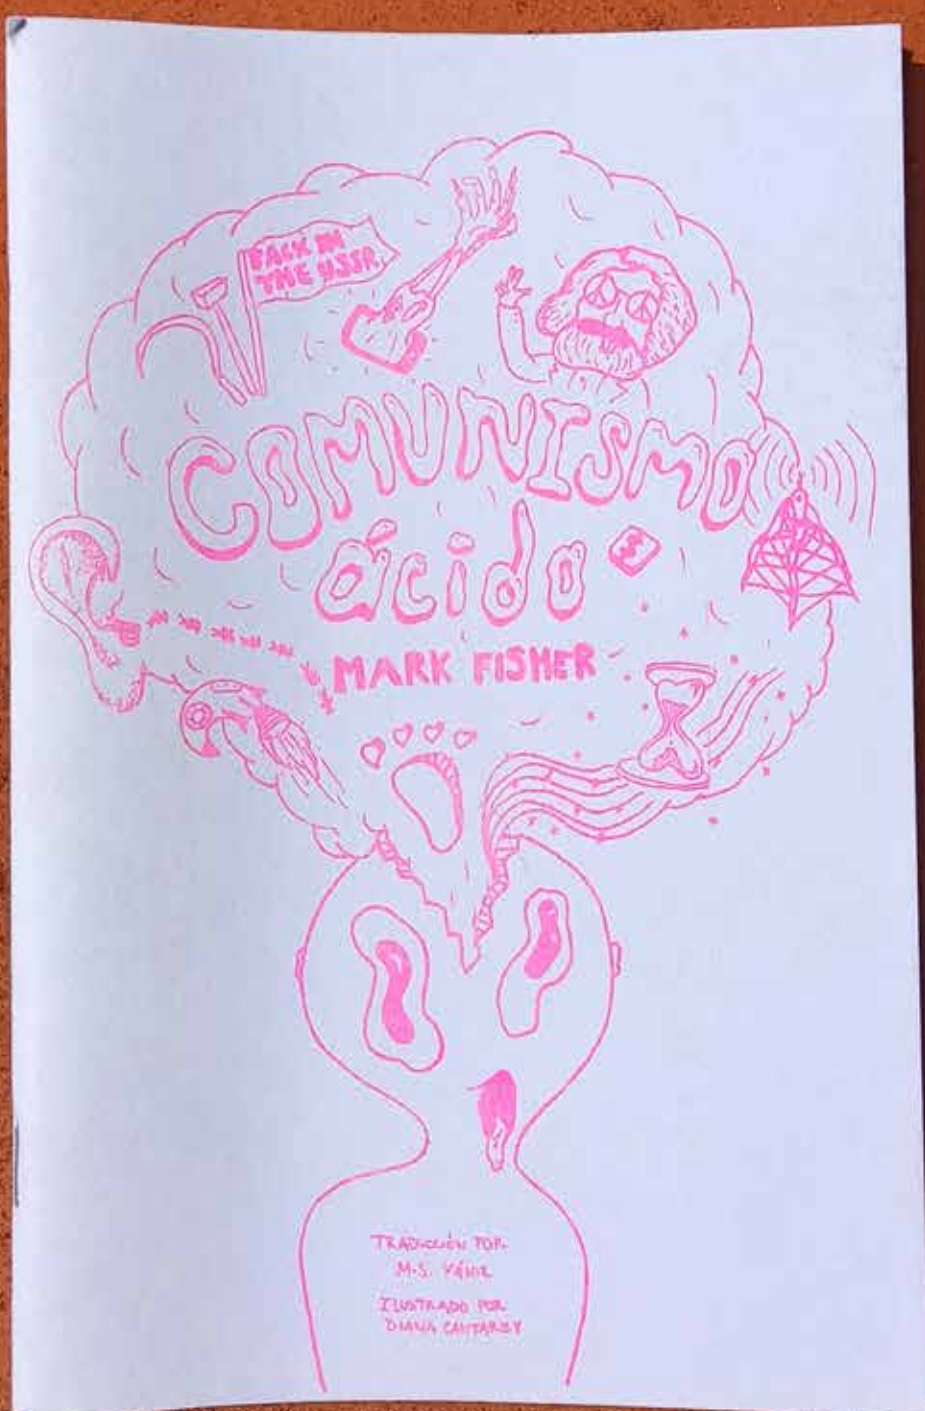 BACK IN
THE USSR
COMUNISMO
ácido
MARK FISHER
TRADUCCIÓN POR
M.S. YÁNIZ
ILUSTRADO POR
DIANA CANTAREY